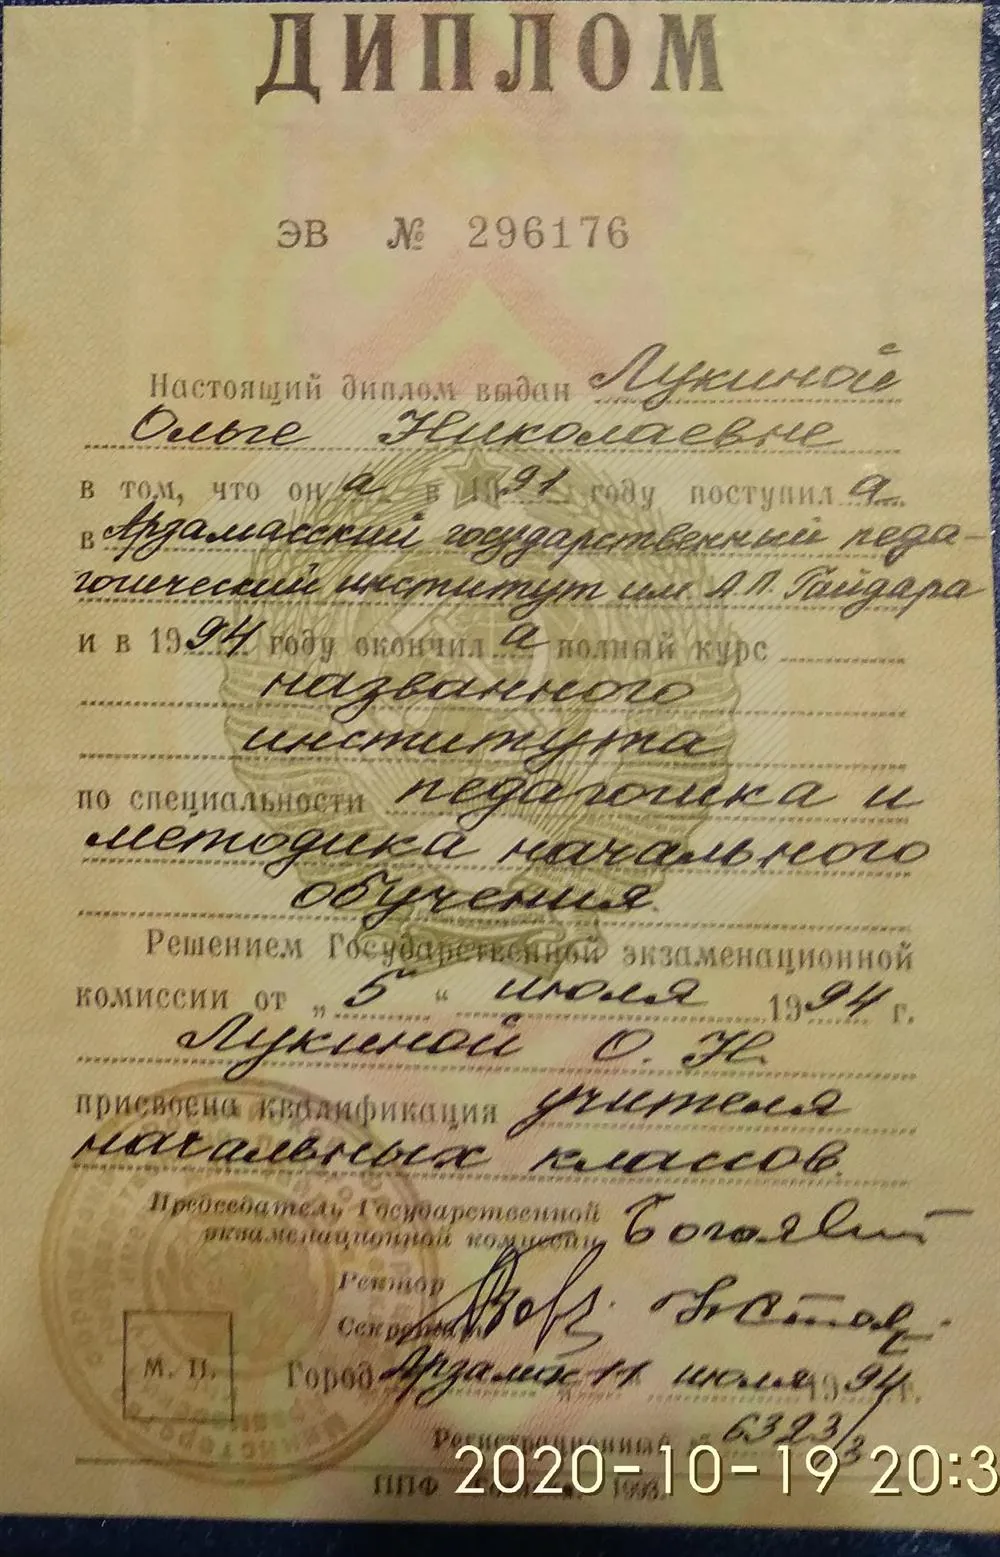 ДИПЛОМ
ЭВ № 296176
Настоящий диплом выдан Лукиной
Ольге Николаевне
в том, что он а в 1991 году поступил а
в Арзамасский государственный педа-
гогический институт им. А.П. Гайдара
и в 1994 году окончил а полный курс
названного
института
по специальности педагогика и
методика начального
обучения.
Решением Государственной экзаменационной
комиссии от „ 5 “ июля 1994 г.
Лукиной О. Н.
присвоена квалификация учителя
начальных классов.
Председатель Государственной
экзаменационной комиссии
Ректор
Секретарь
М. П.
Город Арзамас 11 июля 1994 г.
Регистрационный № 6323/3
ППФ 1993.
2020-10-19 20:3